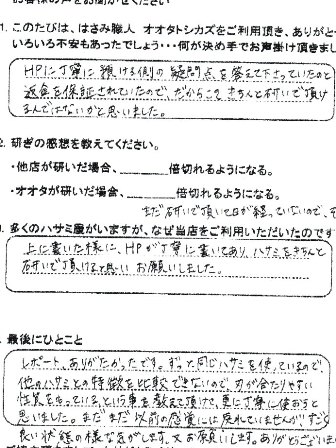 1. このたびは、はさみ職人 オオタトシカズをご利用頂き、ありがと
いろいろ不安もあったでしょう・・・何が決め手でお声掛け頂きまし
HPに丁寧に預ける側の疑問点を答えて下さっていたのと
返金を保証されていたので、だからこそきちんと研いで頂け
るんではないかと思いました。
2. 研ぎの感想を教えてください。
・他店が研いだ場合、 倍切れるようになる。
・オオタが研いだ場合、 倍切れるようになる。
まだ研いで頂いて日が経っていないので、
多くのハサミ屋がいますが、なぜ当店をご利用いただいたのです
上に書いた様に、HPが丁寧に書いてあり、ハサミをきちんと
研いで頂けると思いお願いしました。
最後にひとこと
レポート、ありがたかったです。ずっと同じハサミを使っているので
他のハサミとの特徴を比較できないので、刃が合たりやすい
性質を持っている、という事を教えて頂けて、更に丁寧に使おうと
思いました。まだまだ以前の感覚には戻れていませんが、ずっと
良い状態の様な気がします。又お願いします。ありがとうござい